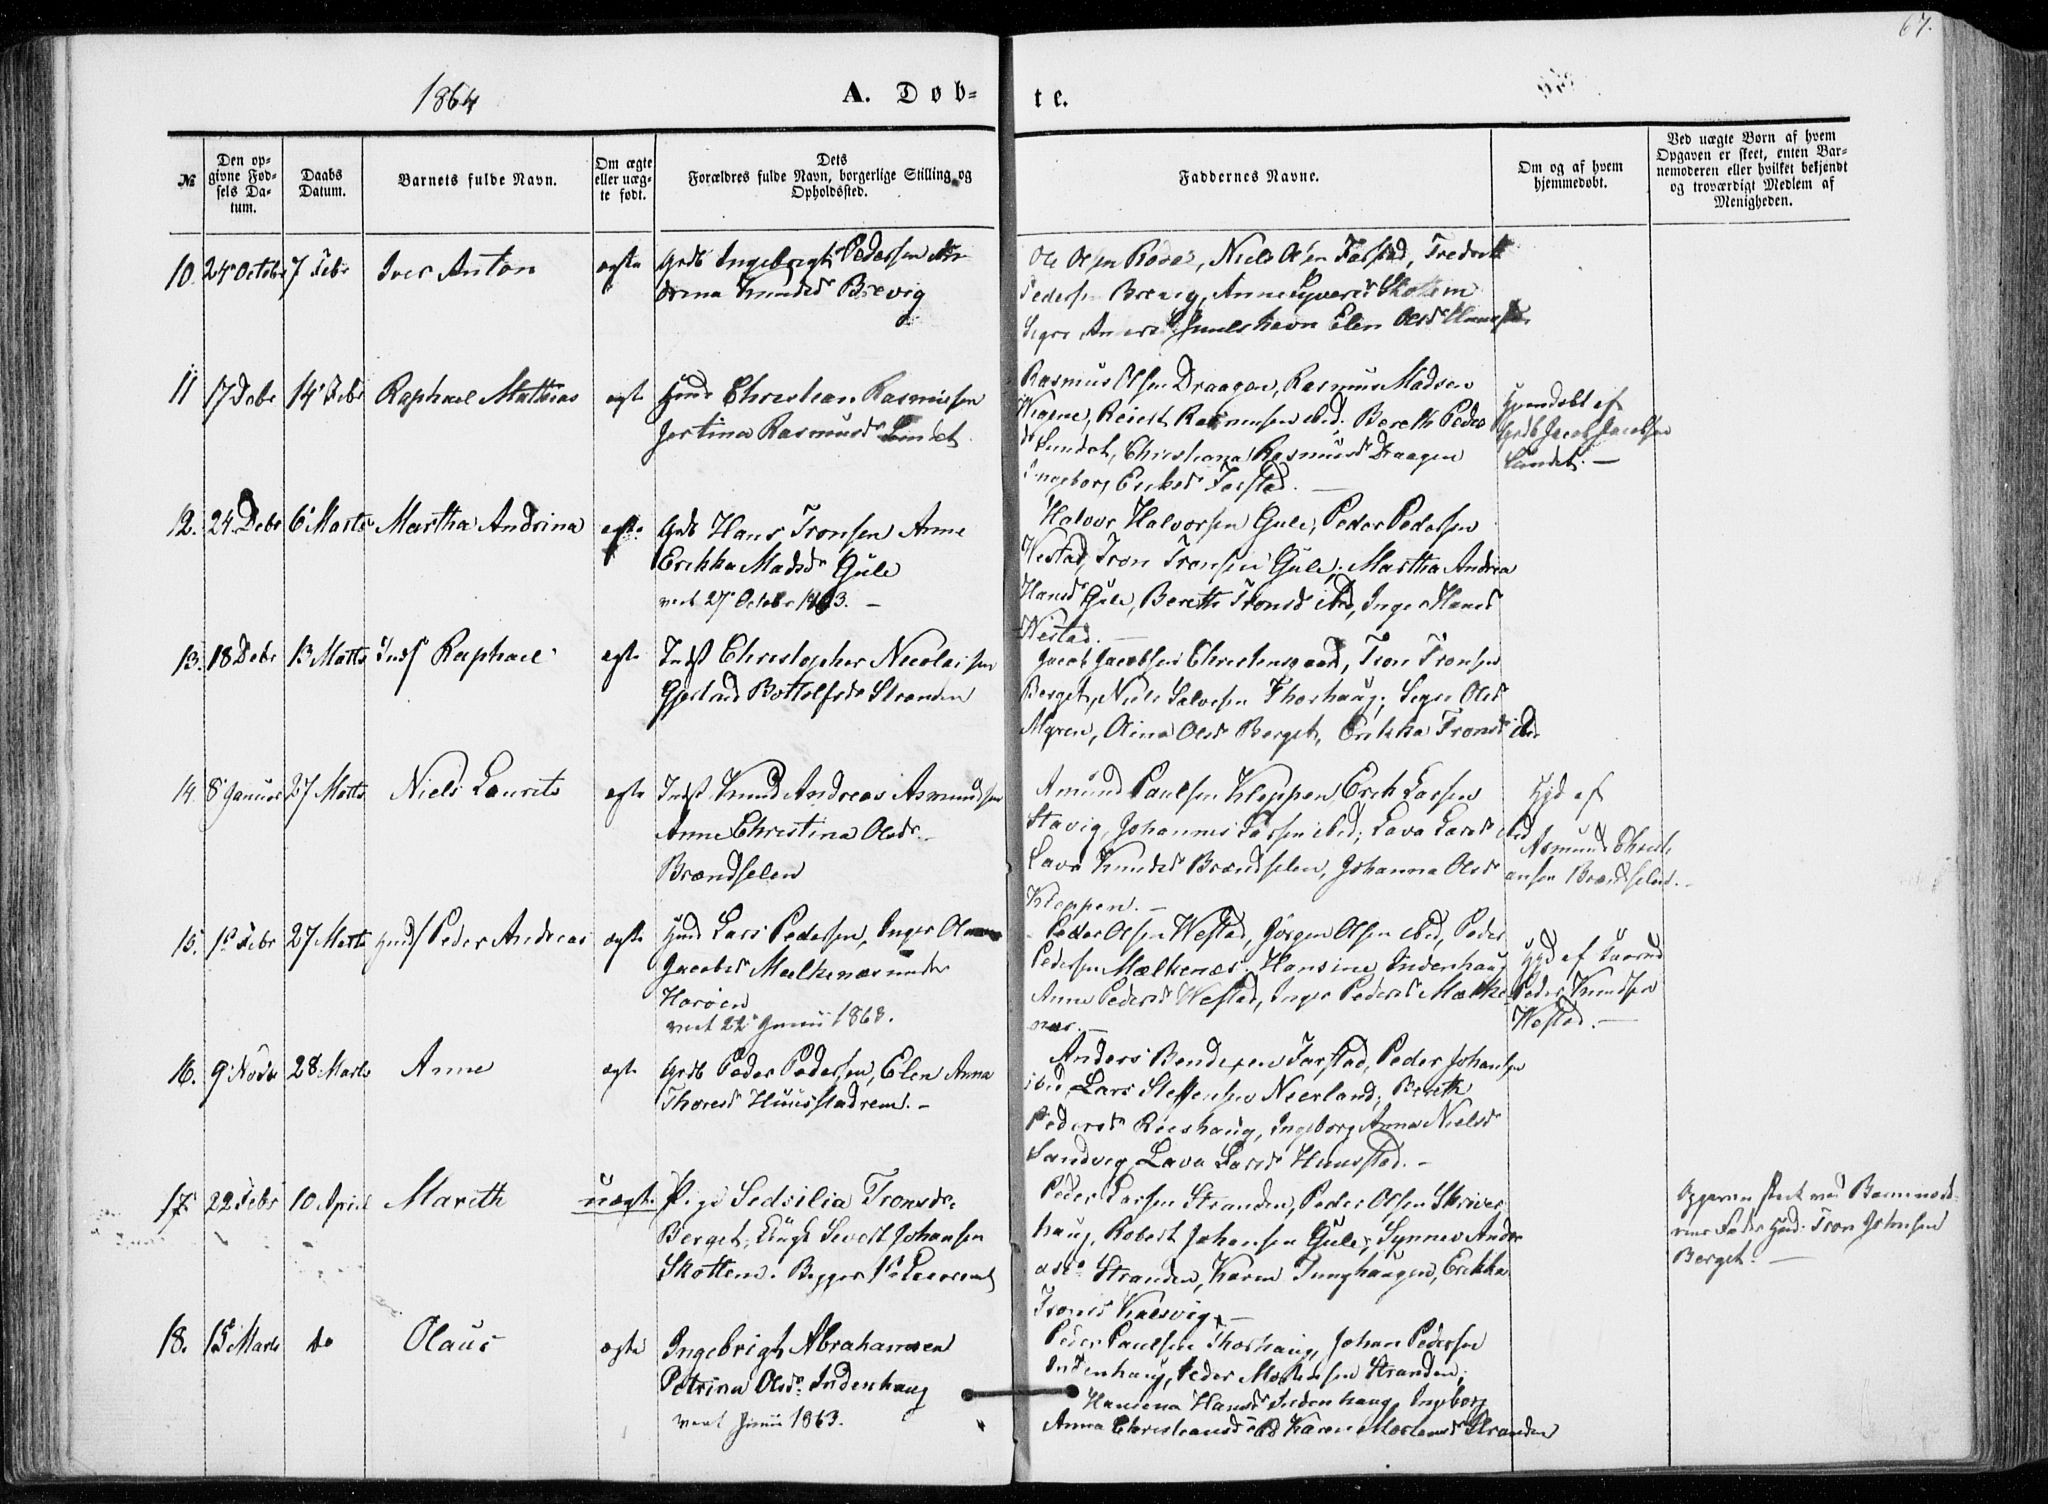 67.
1864
A. Døb-
te.
№
Den op-
givne Fød-
sels Da-
tum.
Daabs
Datum.
Barnets fulde Navn.
Om ægte
eller uæg-
te født.
Dets
Forældres fulde Navn, borgerlige Stilling og
Opholdssted.
Faddernes Navne.
Om og af hvem
hjemmedøbt.
Ved uægte Børn af hvem
Opgaven er skeet, enten Bar-
nemoderen eller hvilket bekjendt
og troværdigt Medlem af
Menigheden.
10. 24 Octobr 7 Febr Iver Anton ægte Grdb Ingebrigt Pedersen
Knudsd Brevig
Ole Olsen, Niels Olsen Farstad, Fredrik
Pedersen Brevig, Anne Syversd Skottem
Elen Olsd
11 17 Debr 14 Febr Raphael Mathias ægte Huusm Christian Rasmussen
Jertina Rasmusd Sundet
Rasmus Olsen Draagen, Rasmus Madsen
Rasmussen ibid; Bereth Peders
d Sundet, Christiana Rasmusd Draagen
Ingeborg Eriksd Farstad. —
Hjemdøbt af
Grdb Jacob Jacobsen
Sundet. —
12. 24 Debr 6 Marts Martha Andrina ægte Grdb Hans Tronsen Anne
Erikka Madsd Gule
viet 27 Octobr 1863. —
Halvor Halvorsen Gule, Peder Pedersen
Westad, Tron Tronsen Gule, Martha Andrea
Hansd Gule, Bereth Tronsd ibid, Inger Hansd
Westad. —
13. 18 Debr 13 Marts Indst Raphael ægte Indst Christopher Nicolaisen
Gjertrud Bottolfsd Stranden
Jacob Jacobsen Christensgaard, Tron Tronsen
Berget, Niels Salvesen Thorhaug, Sigri Olsd
Myren, Olina Olsd Berget, Erikka Tronsd ibid
14. 8 Januar 27 Marts Niels Laurits ægte Indst Knud Andreas Asmundsen
Anne Christina Olsd
Brandselen
Amund Paulsen Kleppen, Erik Larsen
Stavig, Johannes Larsen ibid; Lava Larsd ibid
Lava Knudsd Brandselen, Johanna Olsd
Kleppen. —
Hjd af
Asmund Christi
ansen Brandselen. —
15. 1 Febr 27 Marts Indst Peder Andreas ægte Huusm Lars Pedersen, Inger
Jacobsd Malkenæs under
Harøen
viet 22 Junii 1863.
Peder Olsen Westad, Jørgen Olsen ibid, Peder
Pedersen Malkenæs, Hansine Indenhaug
Anne Pedersd Westad, Inger Pedersd Malke
næs. —
Hjd af
Peder Knudsen
Westad. —
16. 9 Novbr 28 Marts Anne ægte Grdb Peder Pedersen, Elen Anna
Thoresd Huusstadrem. —
Anders Bendixen Farstad, Peder Johansen
ibid, Lars Steffensen Neerland; Bereth
Pedersd Riishaug, Ingeborg Anna Nielsd
Sandvig, Lava Larsd Huusstad. —
17. 22 Febr 10 April Mareth uægte Pige Sedsilia Tronsd
Berget, Ungk Sivert Johansen
Skottem. Begges 1ste Leiermaal
Peder Larsen Stranden, Peder Olsen Skriver
haug, Robert Johansen Gule, Synnev Andre
asd Stranden, Karen Tunghaugen, Erikka
Tronsd Kalsvig. —
Opgaven skeet ved Barnemode-
rens Fader Huusm Tron Johnsen
Berget. —
18. 15 Marts Do Olaus ægte Ingebrigt Abrahamsen
Petrina Olsd Indenhaug
viet Junii 1863.
Peder Paulsen Thorhaug, Johan Pedersen
Indenhaug, Peder Mortensen Stranden,
Hansena Hansd Indenhaug, Ingeborg
Anna Christiansd ibid Karen Mortensd Stranden